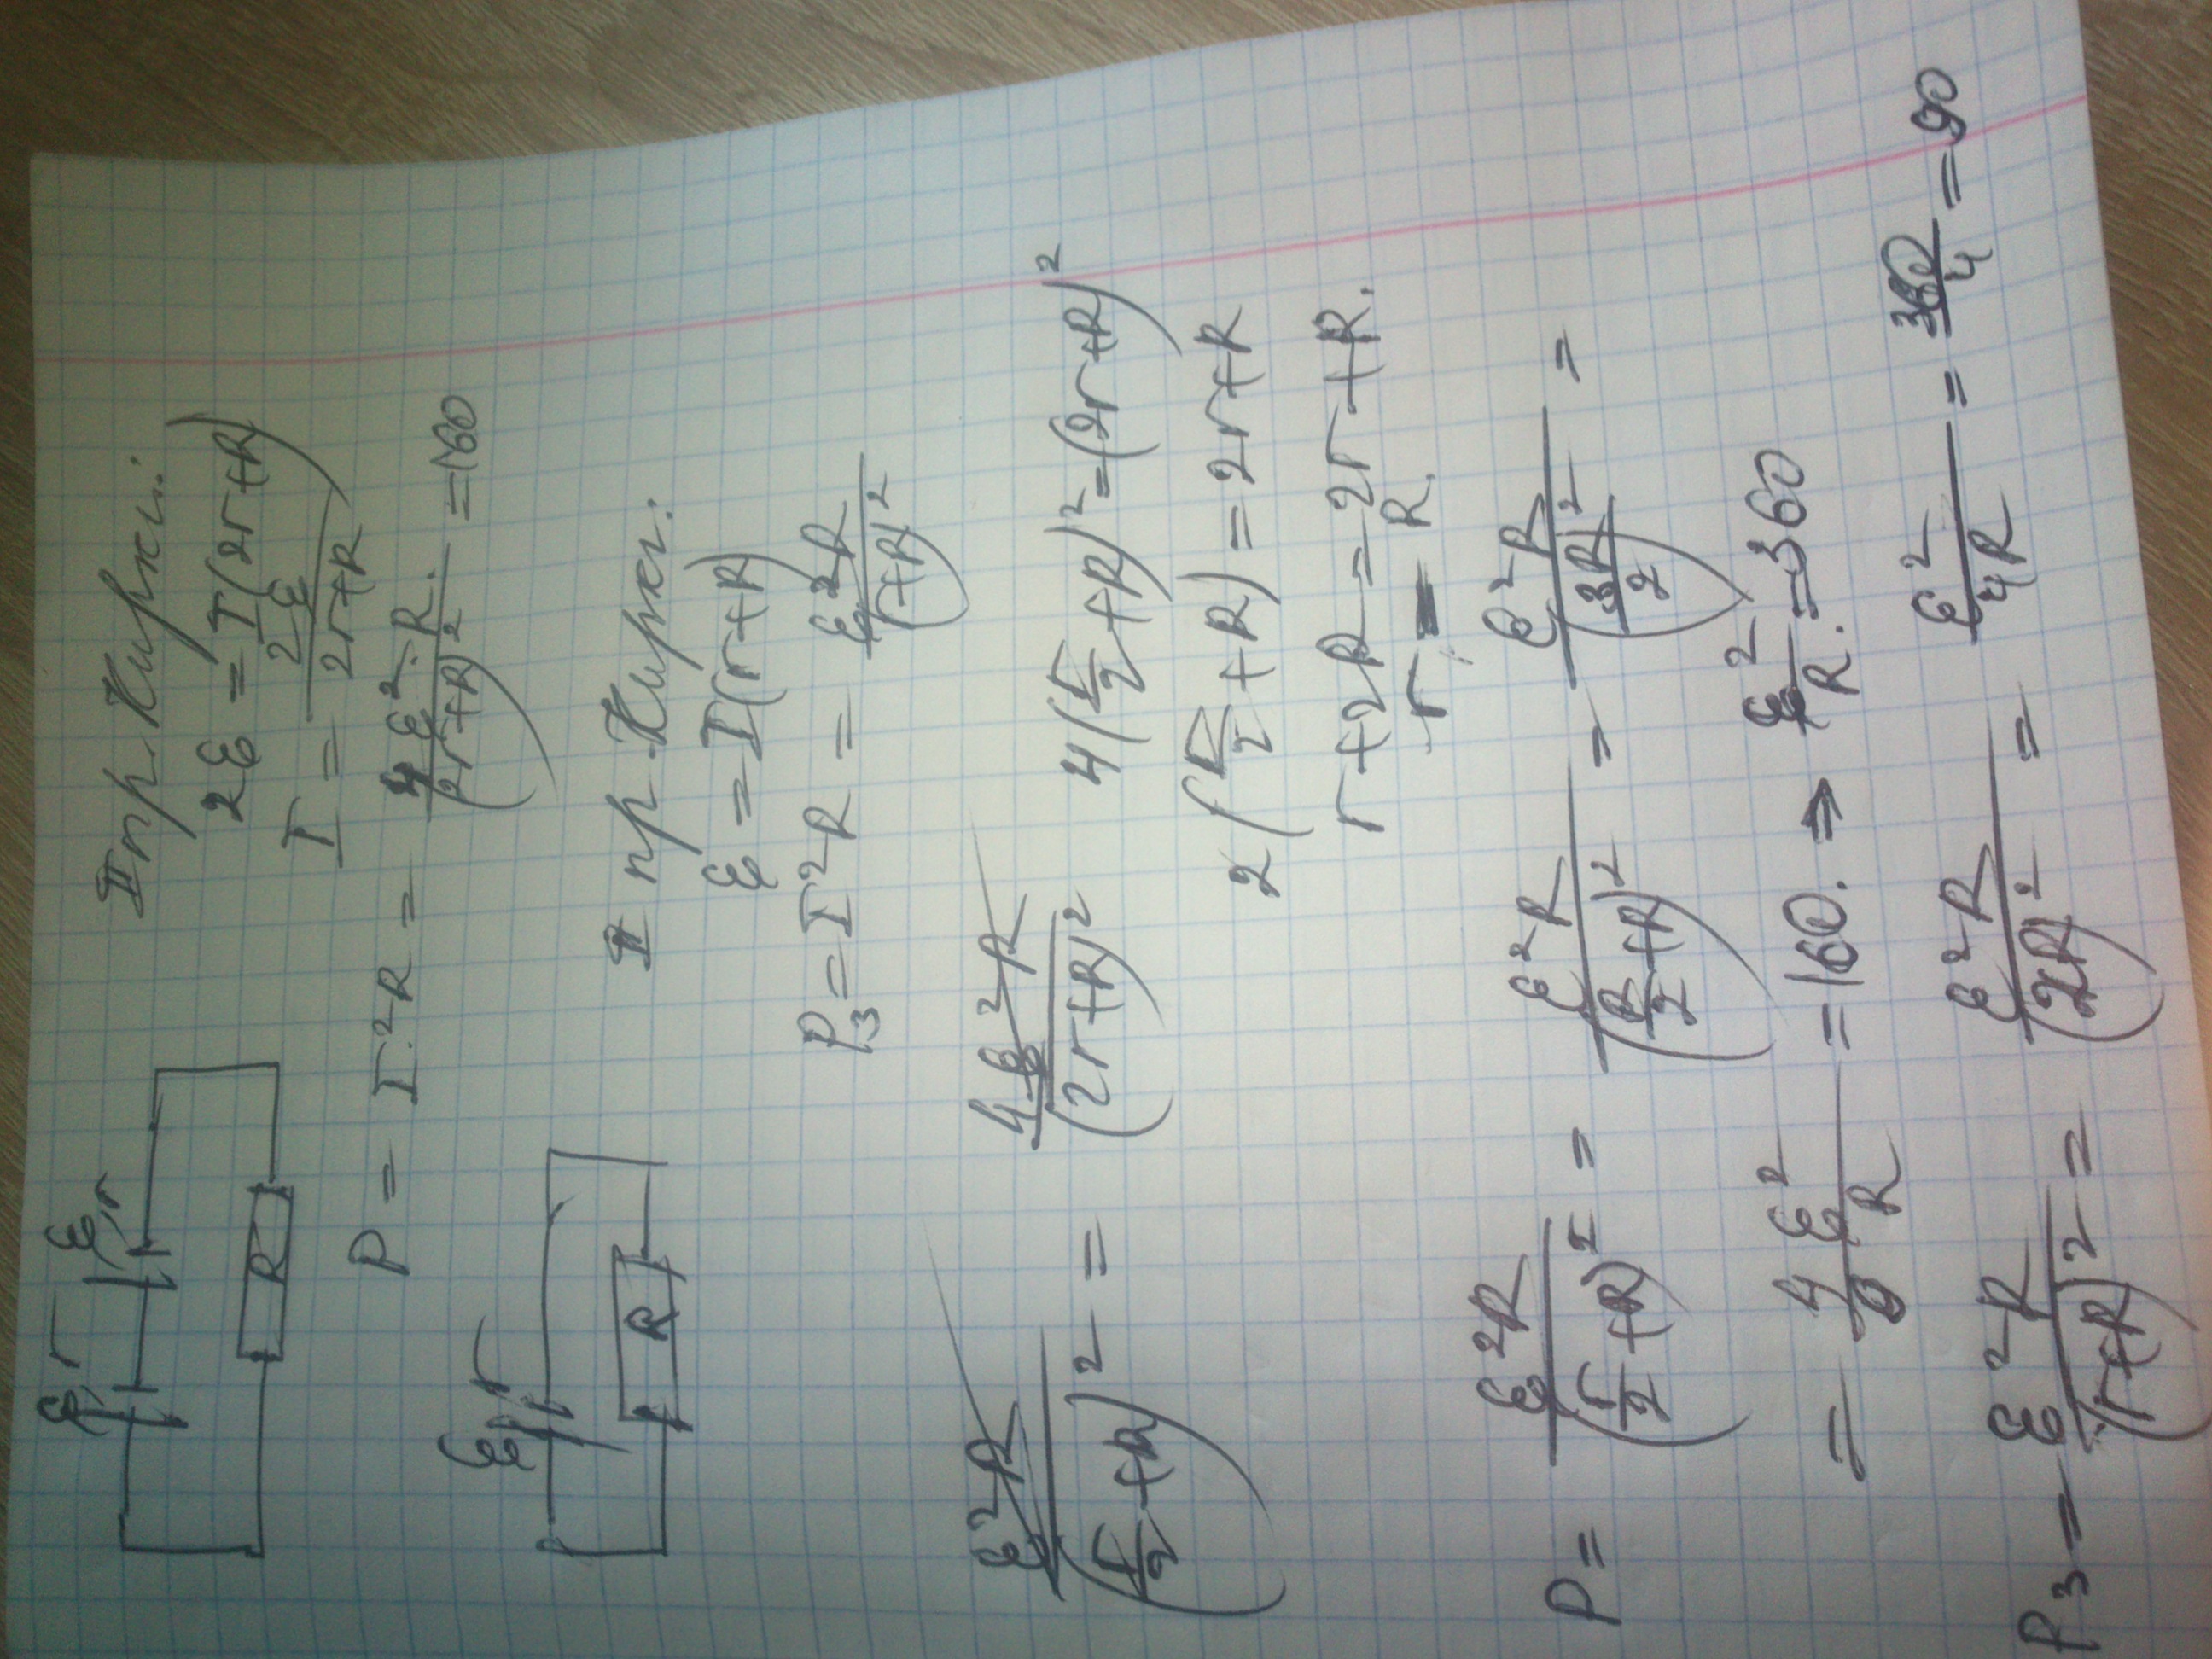 ℰ, r ℰ, r
R
II пр. Кирхг.:
2ℰ = I(2r+R)
I = 2ℰ/(2r+R)
P = I²R = 4ℰ²·R/(2r+R)² = 160
ℰ, r
R
II пр. Кирхг.:
ℰ = I(r+R)
P₃ = I²R = ℰ²R/(r+R)²
ℰ²R/(r/2+R)² = 4ℰ²R/(2r+R)² 4(r/2+R)² = (2r+R)²
2(r/2+R) = 2r+R
r+2R = 2r+R.
r = R.
P = ℰ²R/(r/2+R)² = ℰ²R/(R/2+R)² = ℰ²R/(3R/2)² =
= 4/9 ℰ²/R = 160. ⇒ ℰ²/R. = 360
P₃ = ℰ²R/(r+R)² = ℰ²R/(2R)² = ℰ²/4R = 360/4 = 90